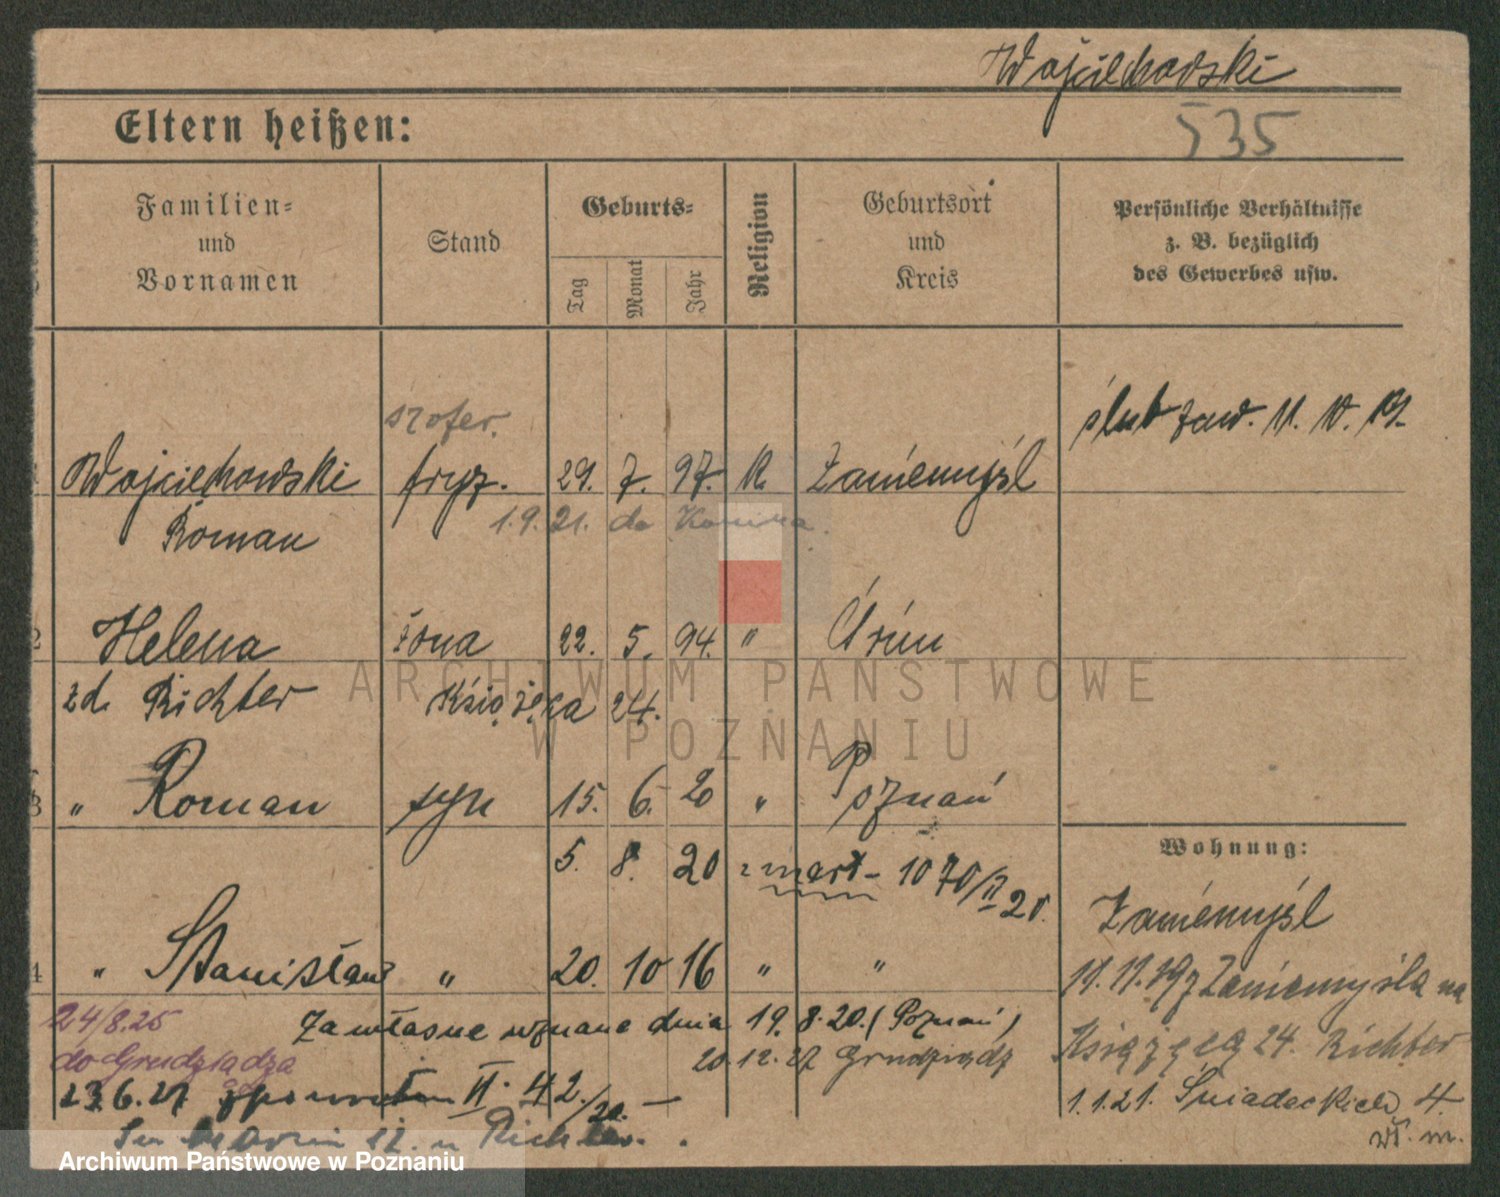 Wojciechowski
535
Eltern heißen:
Familien-
und
Vornamen
Stand
Geburts-
Tag
Monat
Jahr
Religion
Geburtsort
und
Kreis
Persönliche Verhältnisse
z. B. bezüglich
des Gewerbes usw.
szofer.
ślub zaw. 11. 10. 19.
Wojciechowski fryz. 29. 7. 97. K. Zaniemyśl
Roman
1.9.21. do Konina.
2 Helena żona 22. 5. 94. "
zd. Richter Książęca 24.
3 " Roman syn 15. 6. 20 " Poznań
5. 8. 20 zmarł - 1070/II 20.
Wohnung:
Zaniemyśl
4 " Stanisław " 20. 10 16 " "
11.11.19 z Zaniemyśla na
24/8.25
Za własne uznane dnia 19. 8. 20. (Poznań)
Książęcą 24. Richter
do Grudziądza
20.12.27 Grudziądz
23.6.27 z powrotem II. 42./20. -
1.1.21. Śniadeckich 4.
wł. m.
Sw Marcin u Richter.
ARCHIWUM PAŃSTWOWE
W POZNANIU
Archiwum Państwowe w Poznaniu